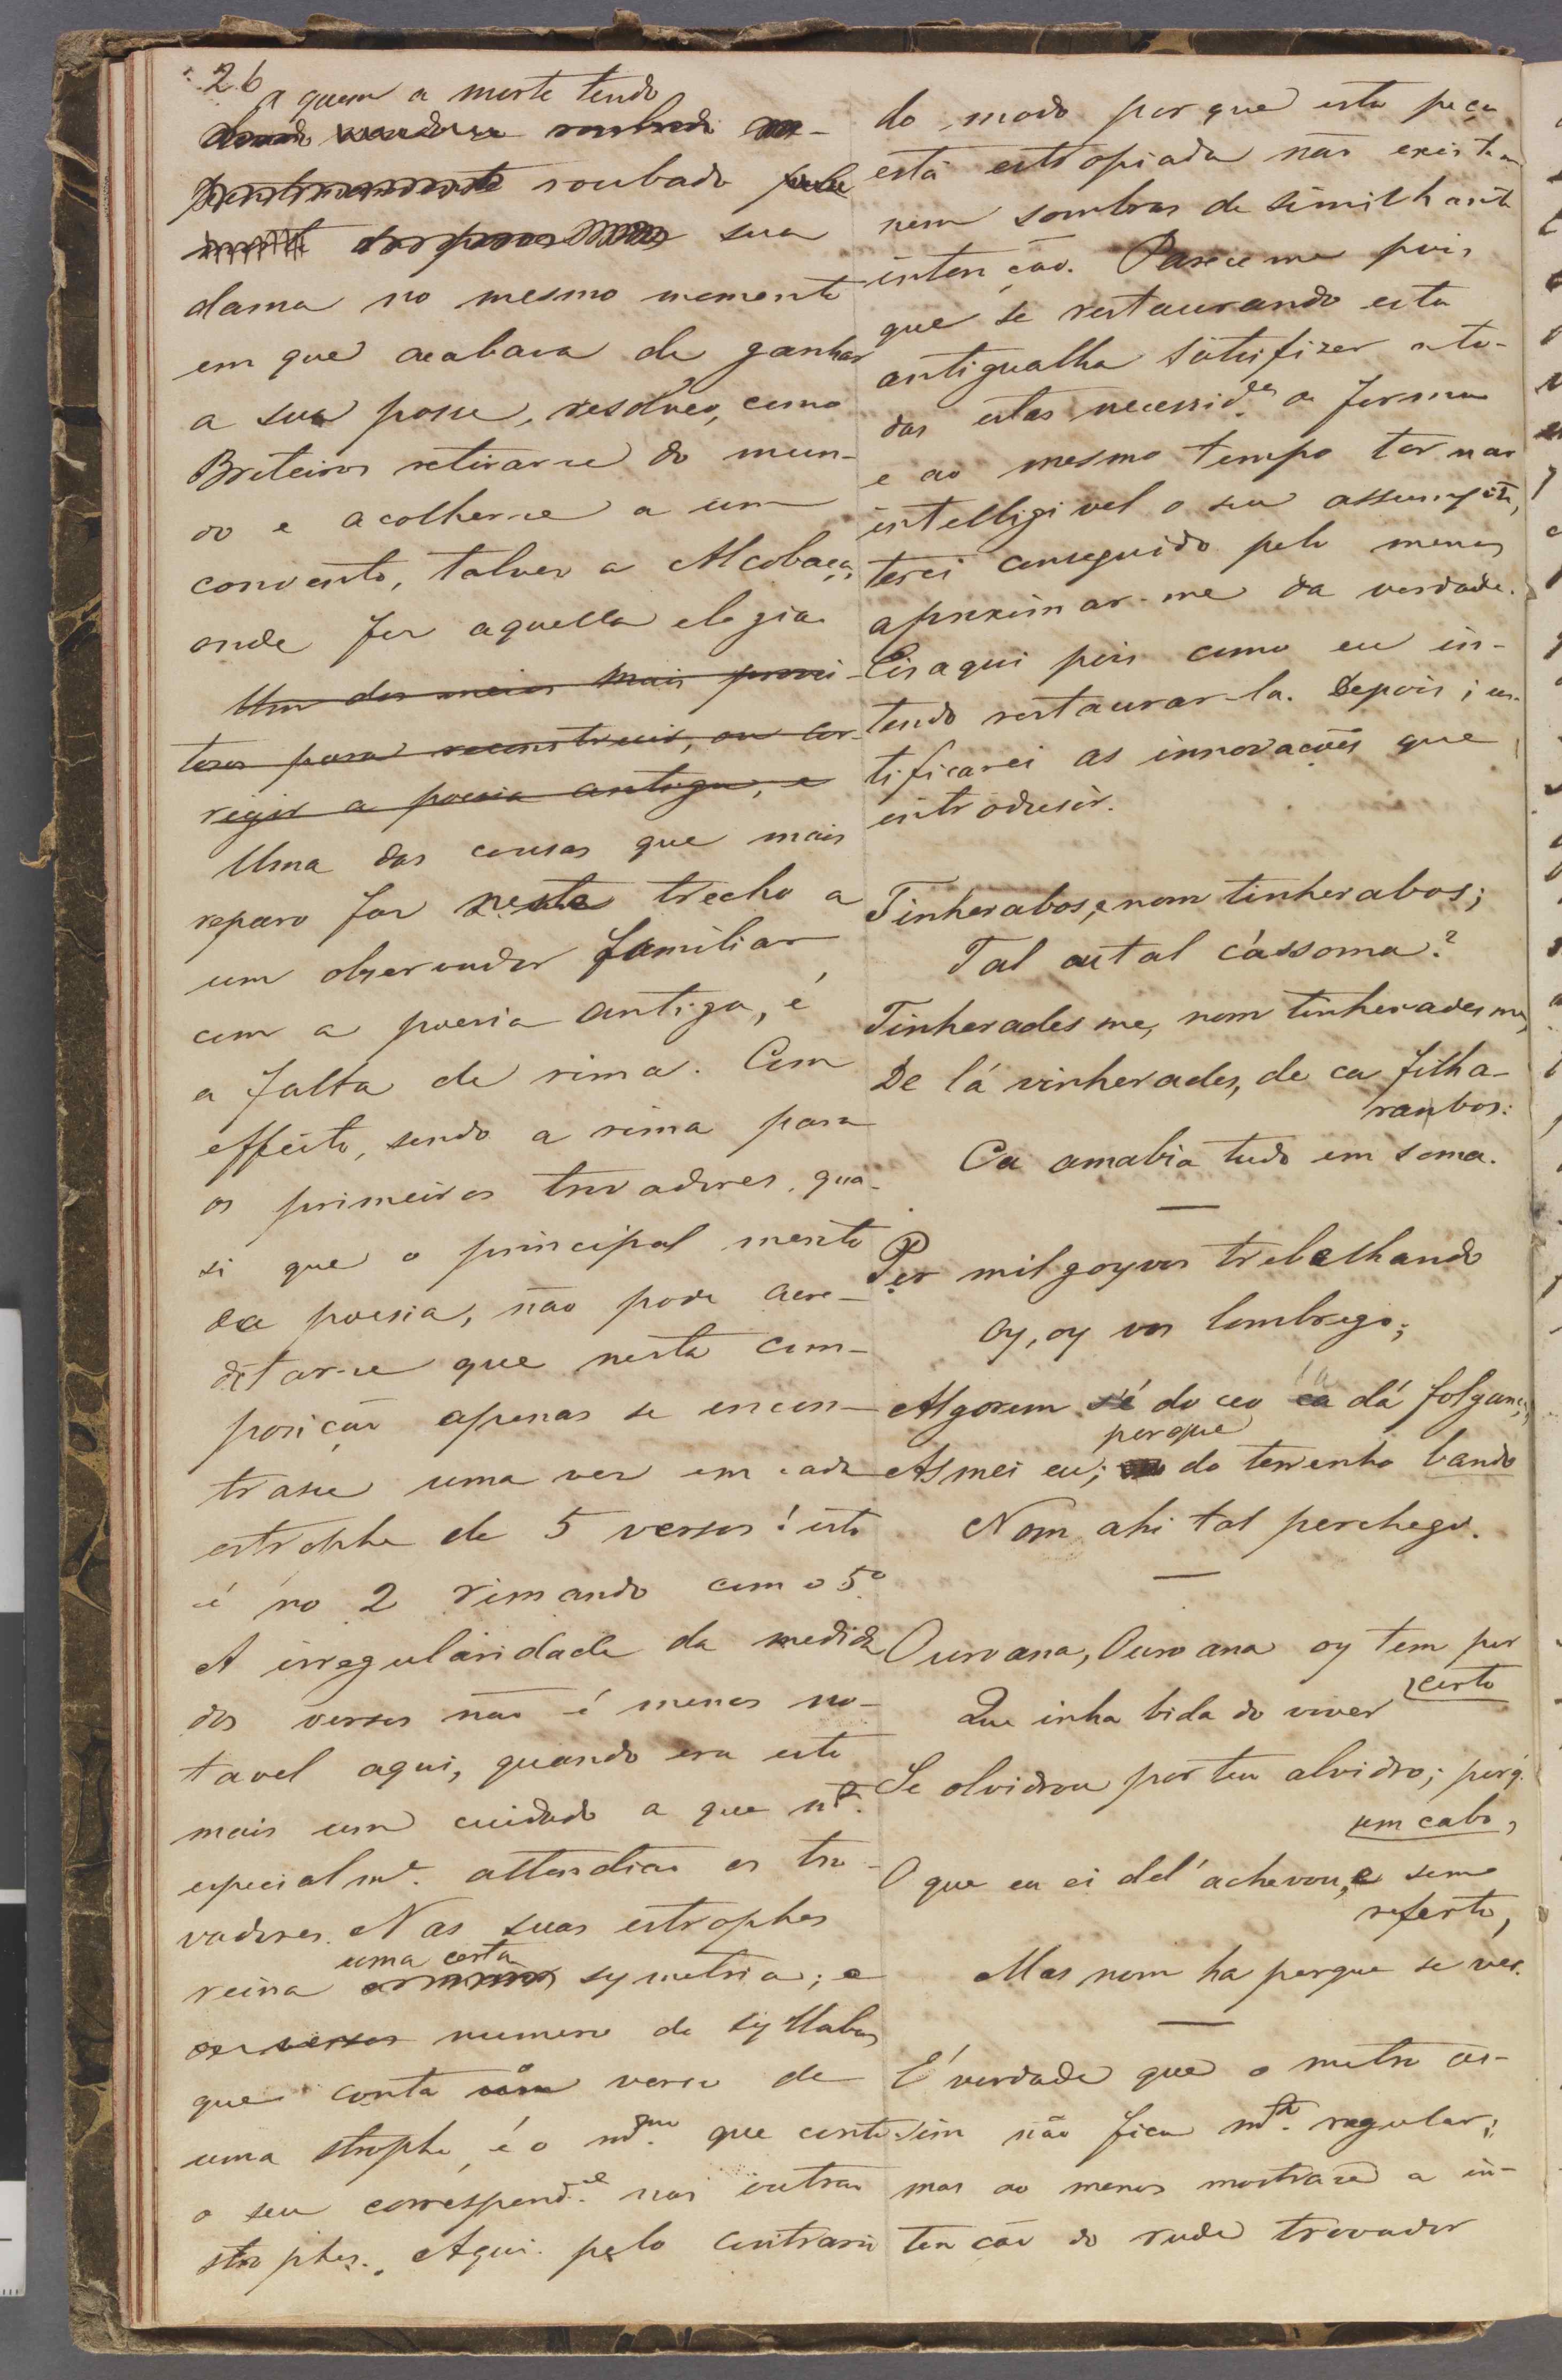 26
a quem a morte tendo
roubado
sua
dama no mesmo momento
em que acabava de ganhar
a sua posse, resolveo, como
Briteiros retirar-se do mun-
do e acolher-se a um
convento, talvez a Alcobaça,
onde fez aquella elegia
Um dos meios mais provei-
tosos para reconstruir, ou cor-
regir a poesia antiga, e
Uma das cousas que mais
reparo faz neste trecho a
um observador familiar
com a poesia antiga, é
a falta de rima. Com
effeito, sendo a rima para
os primeiros trovadores, qua-
si que o principal merito
da poesia, não pode acre-
ditar-se que nesta com-
posição apenas se encon-
trasse uma vez em cada
estrophe de 5 versos! isto
é no 2 rimando com o 5º
A irregularidade da medida
dos versos não é menos no-
tavel aqui, quando era este
mais um cuidado a que
especialmᵉ. attendião os tro-
vadores. Nas suas estrophes
uma certa
reina symetria; e
os versos numero de syllabas
que conta verso de
uma strophe, é o mᵐᵒ. que conta
o seu correspondᵉ. nas outras
strophes. Aqui pelo contrario
do modo por que esta peça
está estropiada não existem
nem sombras de similhante
intenção. Parece-me pois
que se restaurando esta
antigualha satisfizer a to-
das estas necessidᵉˢ da forma
e ao mesmo tempo tornar
intelligivel o seu assumpto,
terei conseguido pelo menos
aproximar-me da verdade.
Eis aqui pois como eu in-
tendo restaurar-la. Depois jus-
tificarei as innovações que
introdusir.
Tinherabos, e nom tinherabos;
Tal autal cássoma?
Tinherades me, nom tinherades me,
De lá vinherades, de ca filha-
ranbos:
Ca amabia tudo em soma.
Per mil goyvos trebelhando
Oy, oy vos lombrego;
Algorem sé do ceo ca dá folgança,
porque
Asmei eu; do terrenho bando
Nom ahi tal perchego.
Ouroana, Ouroana oy tem per
certo
Que inha bida do viver
Se olvidrou por teu alvidro; porq̃
em cabo,
O que eu ei del' achevou, e seme
referto,
Mas nom ha porque se ver.
É verdade que o metro as-
sim não fica mᵗᵒ. regular;
mas ao menos mostra-se a in-
tenção do rude trovador